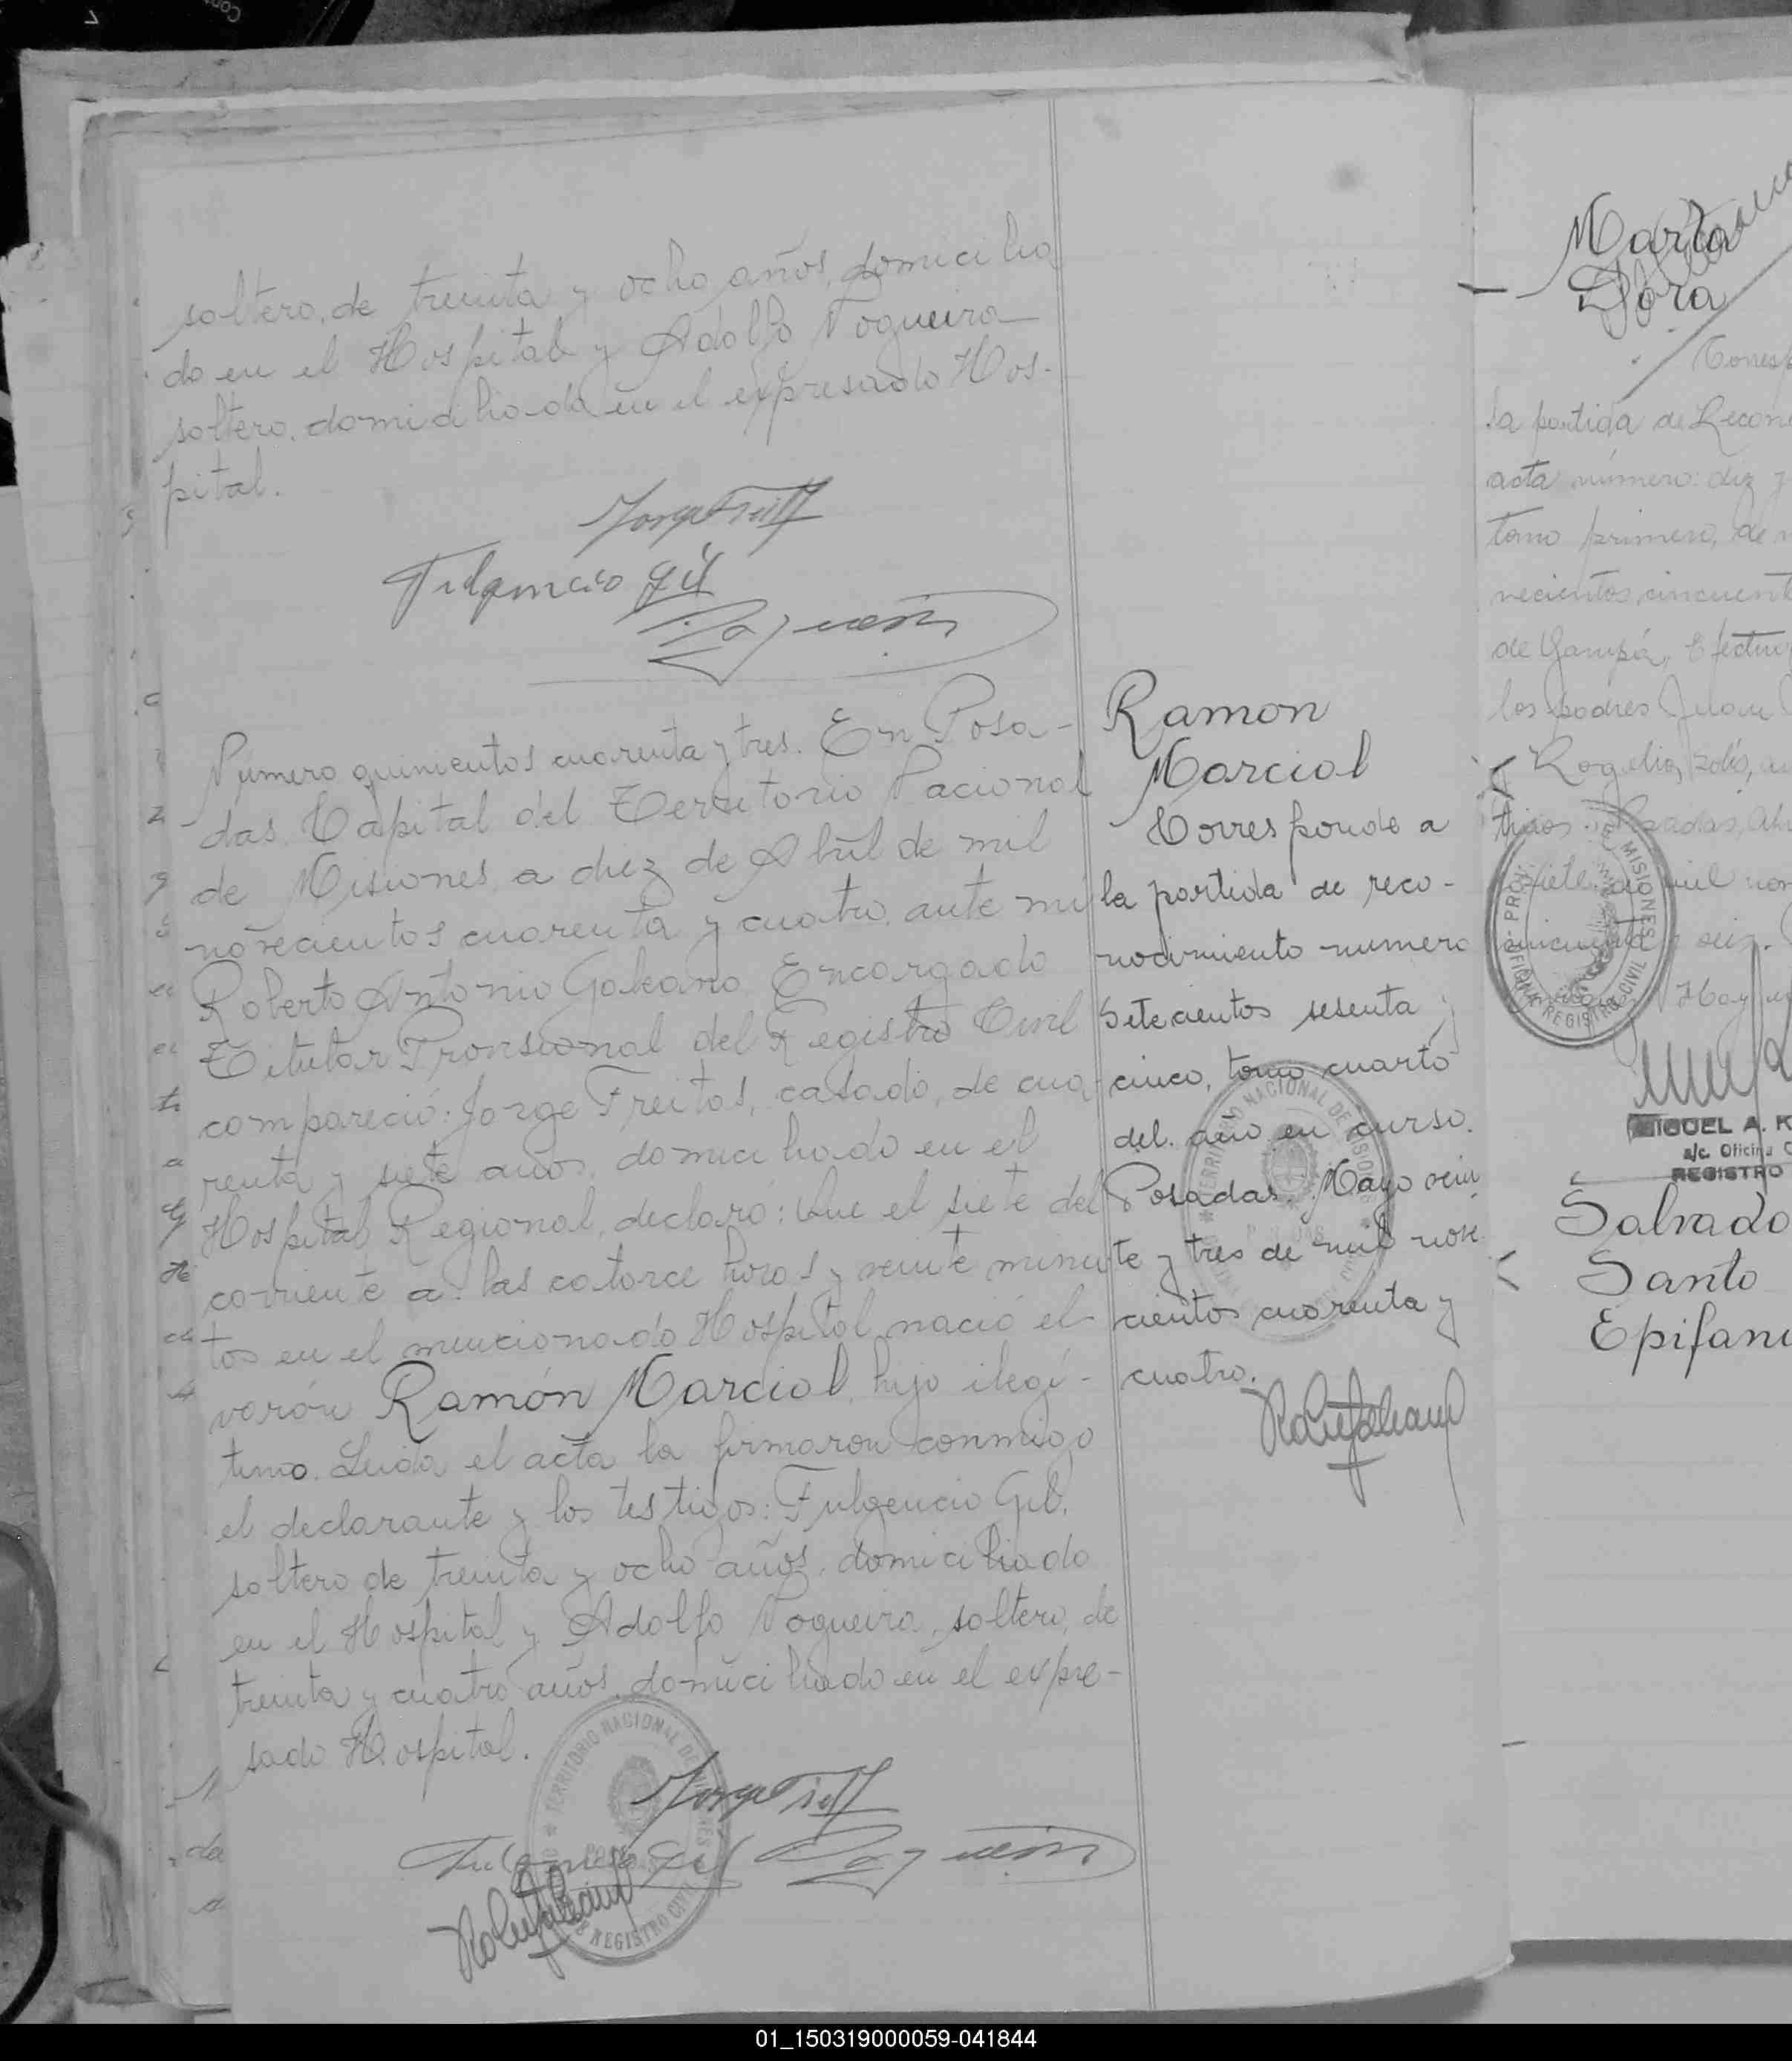 soltero, de treinta y ocho años, domicilia
do en el Hospital y Adolfo Nogueira
soltero, domiciliado en el expresado Hos-
pital.
Fulgencio Gil
Numero quinientos cuarenta y tres. En Posa-
das, Capital del Territorio Nacional
de Misiones, a diez de Abril de mil
novecientos cuarenta y cuatro, ante mi
Roberto Antonio Galeano, Encargado
Titular Provisional del Registro Civil
compareció: Jorge Freitas, casado, de cua-
renta y siete años, domiciliado en el
Hospital Regional, declaró: Que el siete del
corriente a las catorce horas y veinte minu
tos en el mencionado Hospital nació el
varón Ramón Marcial, hijo ilegí-
timo. Leida el acta la firmaron conmigo
el declarante y los testigos: Fulgencio Gil,
soltero de treinta y ocho años, domiciliado
en el Hospital y Adolfo Nogueira, soltero, de
treinta y cuatro años, domiciliado en el expre-
sado Hospital.
Fulgencio Gil
TERRITORIO NACIONAL DE MISIONES
REGISTRO CIVIL
Ramon
Marcial
Corresponde a
la partida de reco-
nocimiento numero
Setecientos sesenta y
cinco, tomo cuarto
del año en curso.
Posadas, Mayo vein
te y tres de mil nove
cientos cuarenta y
cuatro.
TERRITORIO NACIONAL DE MISIONES
Marta
Dora
la partida de Recon
acta número: diez y
tomo primero, de m
vecientos cincuent
de Garupá. Efectuo
los padres Juan
Rogelio
Posadas, Ab
siete de mil nov
cincuenta y seis.
PROV. DE MISIONES
OFICINA REGISTRO CIVIL
MIGUEL A. K
a/c. Oficina
REGISTRO
Salvado
Santo
Epifani
01_150319000059-041844